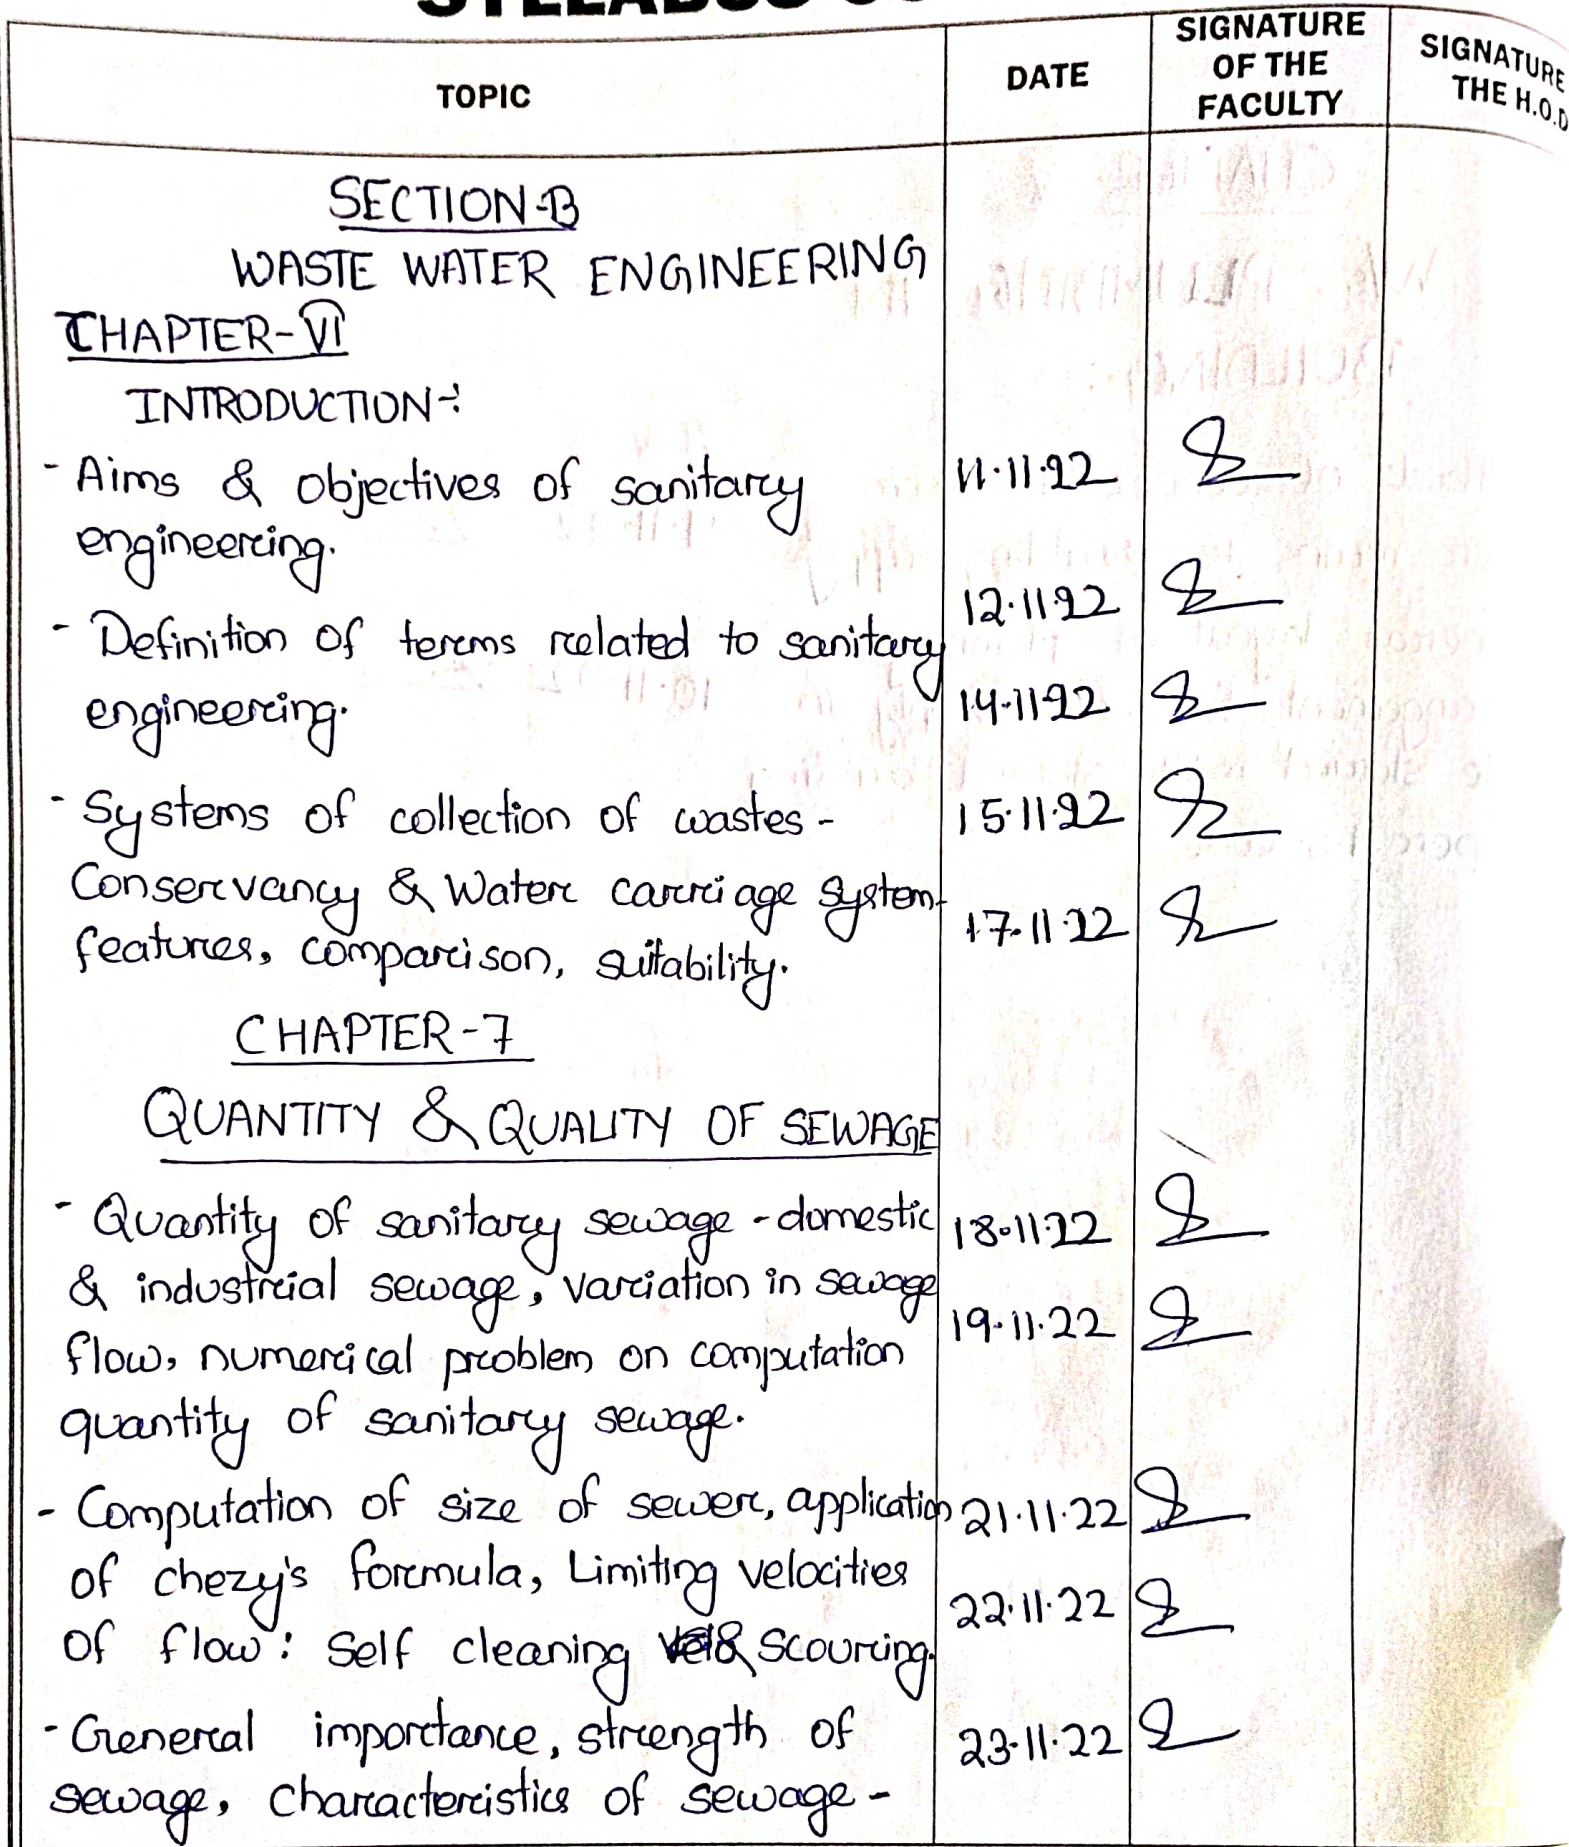 TOPIC
DATE
SIGNATURE
OF THE
FACULTY
SIGNATURE
THE H.O.D
SECTION-B
WASTE WATER ENGINEERING
CHAPTER-VI
INTRODUCTION-:
- Aims & objectives of sanitary 11.11.22
engineering.
12.11.22
- Definition of terms related to sanitary
engineering. 14.11.22
- Systems of collection of wastes - 15.11.22
Conservancy & Water carriage system-
features, comparison, suitability. 17.11.22
CHAPTER-7
QUANTITY & QUALITY OF SEWAGE
- Quantity of sanitary sewage - domestic 18.11.22
& industrial sewage, variation in sewage
flow, numerical problem on computation 19.11.22
quantity of sanitary sewage.
- Computation of size of sewer, application 21.11.22
of chezy's formula, Limiting velocities
of flow: Self cleaning & scouring. 22.11.22
- General importance, strength of 23.11.22
sewage, characteristics of sewage -